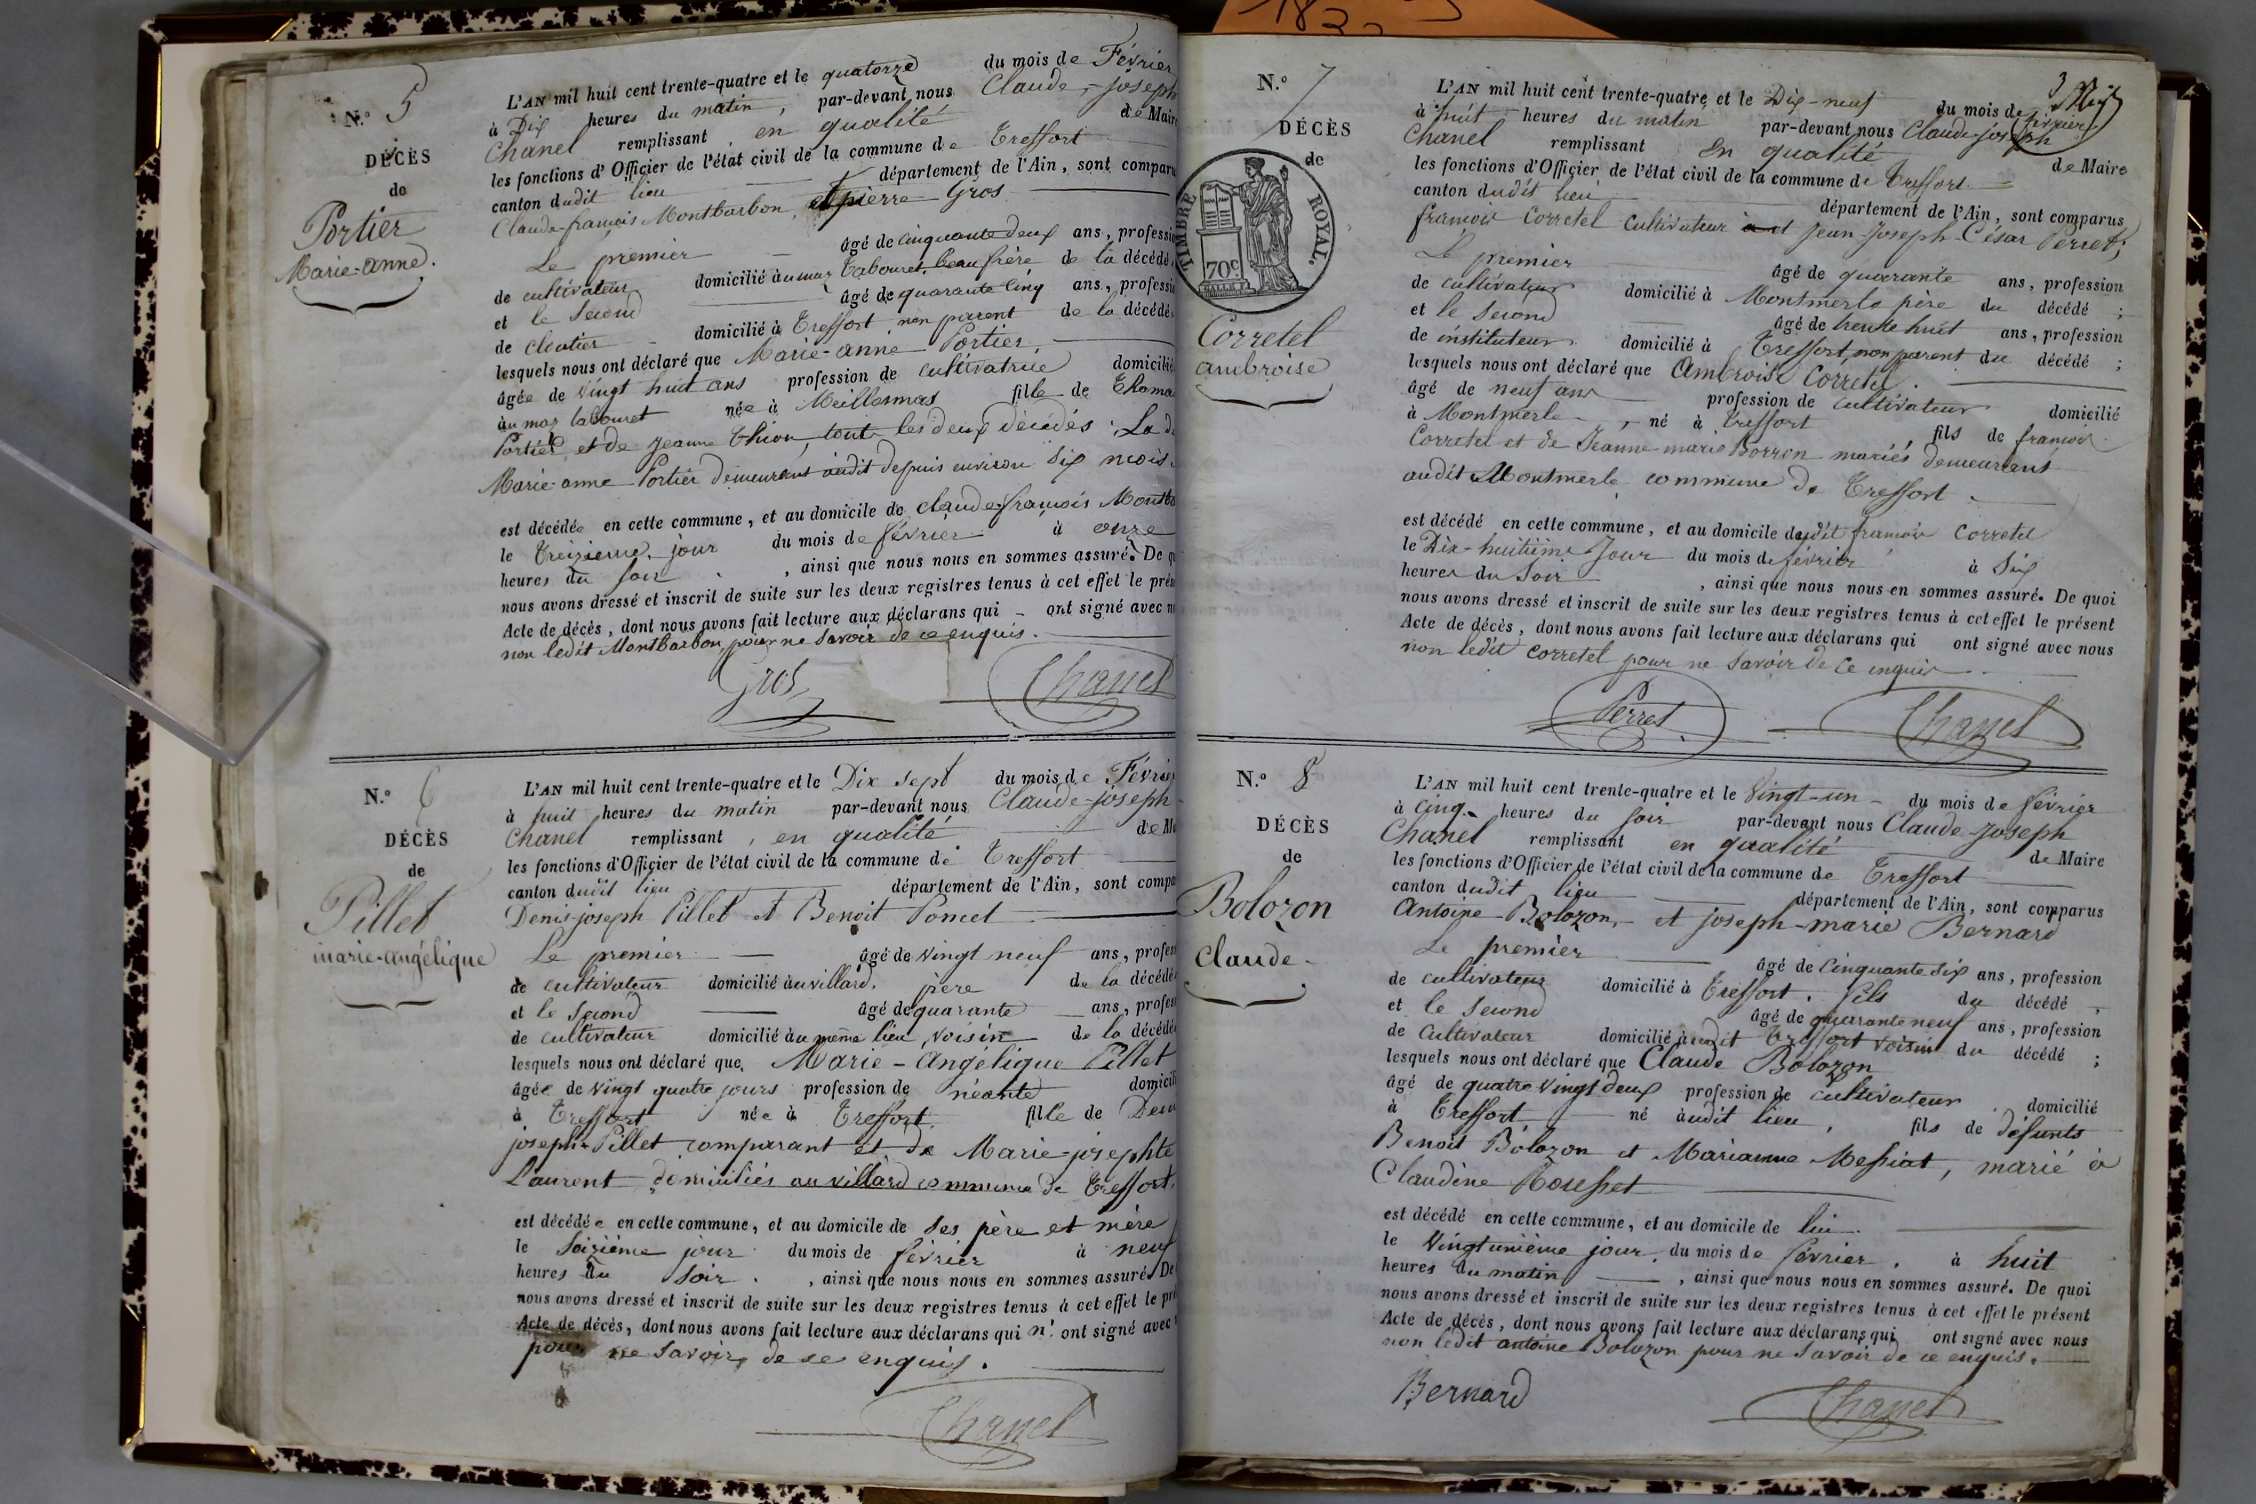 N.º 5
DÉCÈS
de
Portier
Marie-anne.
L'AN mil huit cent trente-quatre et le quatorze du mois de Février
à Dix heures du matin, par-devant nous Claude-joseph
Chanel remplissant, en qualité de Maire
les fonctions d'Officier de l'état civil de la commune de Treffort
canton dudit lieu département de l'Ain, sont comparu
Claude-françois Montbarbon, et pierre Gros
Le premier âgé de cinquante deux ans, professio
de cultivateur domicilié au mas tabouret, beau frère de la décédé
et le second âgé de quarante cinq ans, professi
de cloutier domicilié à Treffort non parent de la décédé
lesquels nous ont déclaré que Marie-anne Portier,
âgée de vingt huit ans profession de cultivatrice domicilié
au mas tabouret née à Meillonnas fille de Thoma
Portier, et de jeanne thion, tout les deux décédés. La d
Marie-anne Portier demeurant audit depuis environ six mois
est décédée en cette commune, et au domicile de claude-françois Montba
le treizieme jour du mois de février à onze
heures du soir, ainsi que nous nous en sommes assuré. De qu
nous avons dressé et inscrit de suite sur les deux registres tenus à cet effet le prés
Acte de décès, dont nous avons fait lecture aux déclarans qui ont signé avec n
non ledit Montbarbon, pour ne savoir de ce enquis.
Gros Chanel
N.º 6
DÉCÈS
de
Pillet
marie-angélique
L'AN mil huit cent trente-quatre et le Dix sept du mois de Févrie
à huit heures du matin par-devant nous Claude-joseph
Chanel remplissant, en qualité de Ma
les fonctions d'Officier de l'état civil de la commune de Treffort
canton dudit lieu département de l'Ain, sont compa
Denis-joseph Pillet et Benoit Poncet
Le premier âgé de vingt neuf ans, profes
de cultivateur domicilié au villard, père de la décédé
et le second âgé de quarante ans, profes
de cultivateur domicilié au même lieu, voisin de la décédé
lesquels nous ont déclaré que Marie-Angélique Pillet
âgée de vingt quatre jours profession de néante domicili
à Treffort née à Treffort, fille de Deni
joseph Pillet comparant et de Marie-josephte
Laurent domiciliés au villard commune de Treffort.
est décédée en cette commune, et au domicile de ses père et mère
le seizième jour du mois de février à neuf
heures du soir, ainsi que nous nous en sommes assuré. De
nous avons dressé et inscrit de suite sur les deux registres tenus à cet effet le pré
Acte de décès, dont nous avons fait lecture aux déclarans qui n'ont signé avec
pour ne savoir, de ce enquis.
Chanel
N.º 7
DÉCÈS
de
TIMBRE ROYAL.
70c.
Corretel
ambroise
L'AN mil huit cent trente-quatre et le Dix-neuf du mois de février
à huit heures du matin par-devant nous Claude-joseph
Chanel remplissant En qualité de Maire
les fonctions d'Officier de l'état civil de la commune de Treffort
canton dudit lieu département de l'Ain, sont comparus
françois Corretel Cultivateur et Jean-Joseph-César Perret,
Le premier âgé de quarante ans, profession
de cultivateur domicilié à Montmerle père du décédé ;
et le second âgé de trente huit ans, profession
de instituteur domicilié à Treffort, non parent du décédé ;
lesquels nous ont déclaré que Ambroise Corretel.
âgé de neuf ans profession de cultivateur domicilié
à Montmerle, né à treffort fils de françois
Corretel et de Jeanne-marie Borron mariés demeurant
audit Montmerle commune de Treffort
est décédé en cette commune, et au domicile dudit françois Corretel
le Dix-huitième Jour du mois de février à Six
heures du Soir, ainsi que nous nous en sommes assuré. De quoi
nous avons dressé et inscrit de suite sur les deux registres tenus à cet effet le présent
Acte de décès, dont nous avons fait lecture aux déclarans qui ont signé avec nous
non ledit Corretel pour ne Savoir de ce enquis
Perret. Chanel
N.º 8
DÉCÈS
de
Bolozon
claude
L'AN mil huit cent trente-quatre et le Vingt-un du mois de février
à Cinq heures du soir par-devant nous Claude-Joseph
Chanel remplissant en qualité de Maire
les fonctions d'Officier de l'état civil de la commune de Treffort
canton dudit lieu département de l'Ain, sont comparus
Antoine Bolozon, et joseph-marie Bernard
Le premier âgé de Cinquante six ans, profession
de cultivateur domicilié à Treffort. fils du décédé ;
et le Second âgé de quarante neuf ans, profession
de Cultivateur domicilié audit Treffort voisin du décédé ;
lesquels nous ont déclaré que Claude Bolozon
âgé de quatre vingt deux profession de cultivateur domicilié
à Treffort né audit lieu, fils de défunts
Benoit Bolozon et Marianne Messiat, marié à
Claudine Rousset
est décédé en cette commune, et au domicile de lui
le Vingtunième jour du mois de février. à huit
heures du matin, ainsi que nous nous en sommes assuré. De quoi
nous avons dressé et inscrit de suite sur les deux registres tenus à cet effet le présent
Acte de décès, dont nous avons fait lecture aux déclarans qui ont signé avec nous
non ledit antoine Bolozon pour ne Savoir de ce enquis.
Bernard Chanel